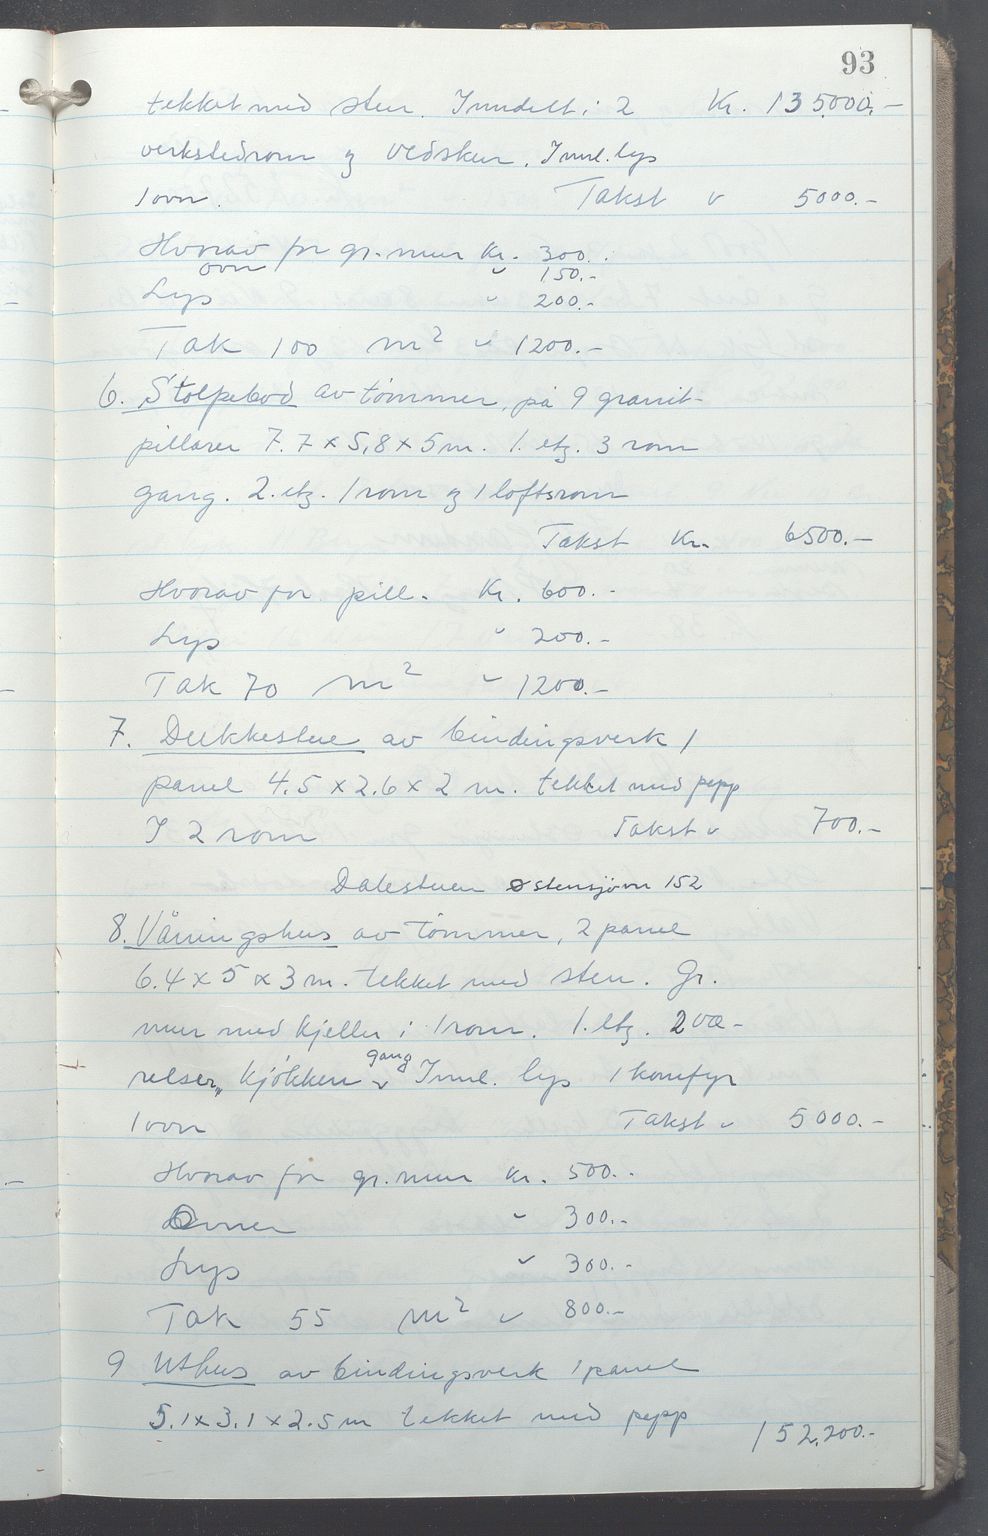 93
tekket med sten. Inndelt i 2 Kr. 135.000,-
verkstedrom og vedskur. Innl. lys
1 ovn. Takst " 5000.-
Hvorav for gr.mur Kr. 300.-
ovn " 150.-
Lys " 200.-
Tak 100 m² " 1200.-
6. Stolpebod av tømmer, på 9 granit-
pillarer 7.7 x 5,8 x 5 m. 1. etg. 3 rom
gang. 2. etg. 1 rom og 1 loftsrom
Takst Kr. 6500.-
Hvorav for pill. Kr. 600.-
Lys " 200.-
Tak 70 m² " 1200.-
7. Dukkestue av bindingsverk 1
panel 4.5 x 2.6 x 2 m. tekket med papp
I 2 rom Takst " 700.-
Dalestuen Østensjövn 152
8. Våningshus av tømmer, 2 panel
6.4 x 5 x 3 m. tekket med sten. Gr.
mur med kjeller i 1 rom. 1. etg. 2 væ-
relser, kjökken gang Innl. lys 1 komfyr
1 ovn Takst " 5000.-
Hvorav for gr.mur Kr. 500.-
Ovner " 300.-
Lys " 300.-
Tak 55 m² " 800.-
9 Uthus av bindingsverk 1 panel
5.1 x 3.1 x 2.5 m tekket med papp
152.200.-